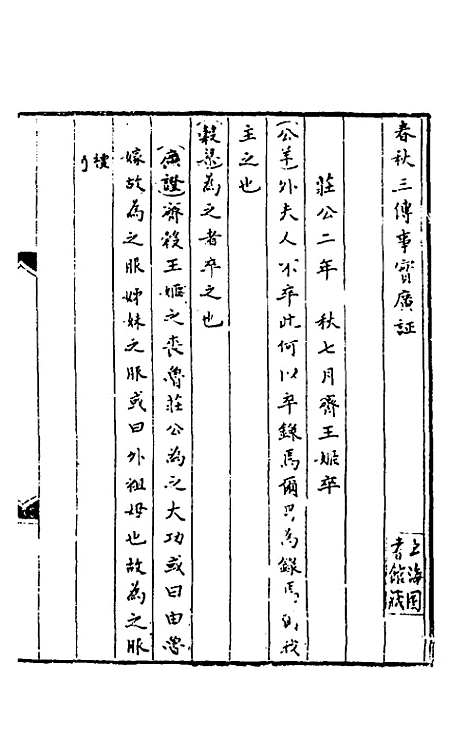 春秋三傳事實廣証
上海图
書館藏
莊公二年 秋七月齊王姬卒
公羊 外夫人不卒此何以卒錄焉爾曷為錄焉尔我
主之也
穀梁 為之者卒之也
廣證 齊穀王姬之喪魯莊公為之大功或曰由魯
嫁故為之服姊妹之服或曰外祖母也故為之服
檀弓